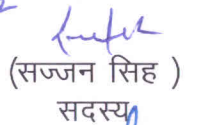 (सज्जन सिंह )
सदस्य